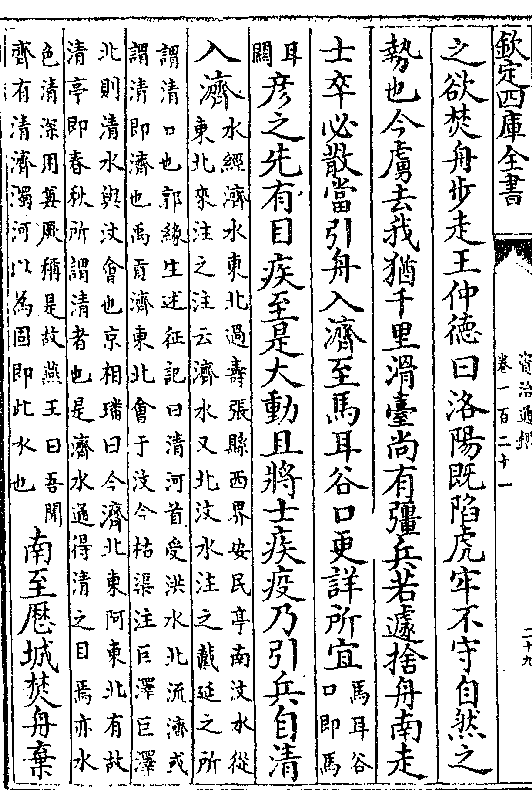 欽定四庫全書
資治通鑑
卷一百二十一
二十九
之欲焚舟步走王仲德曰洛陽既陷虎牢不守自然之
勢也今虜去我猶千里滑臺尚有彊兵若遽捨舟南走
士卒必散當引舟入濟至馬耳谷口更詳所宜
馬耳谷
口即馬
耳
關
彦之先有目疾至是大動且將士疾疫乃引兵自清
入濟
水經濟水東北過壽張縣西界安民亭南汶水從
東北來注之注云濟水又北汶水注之戴延之所
謂清口也郭緣生述征記曰清河首受洪水北流濟或
謂清即濟也禹貢濟東北會于汶今枯渠注巨澤巨澤
北則清水與汶會也京相璠曰今濟北東阿東北有故
清亭即春秋所謂清者也是濟水通得清之目焉亦水
色清深用稱是故燕王曰吾聞
齊有清濟濁河以為固即此水也
南至厯城焚舟棄